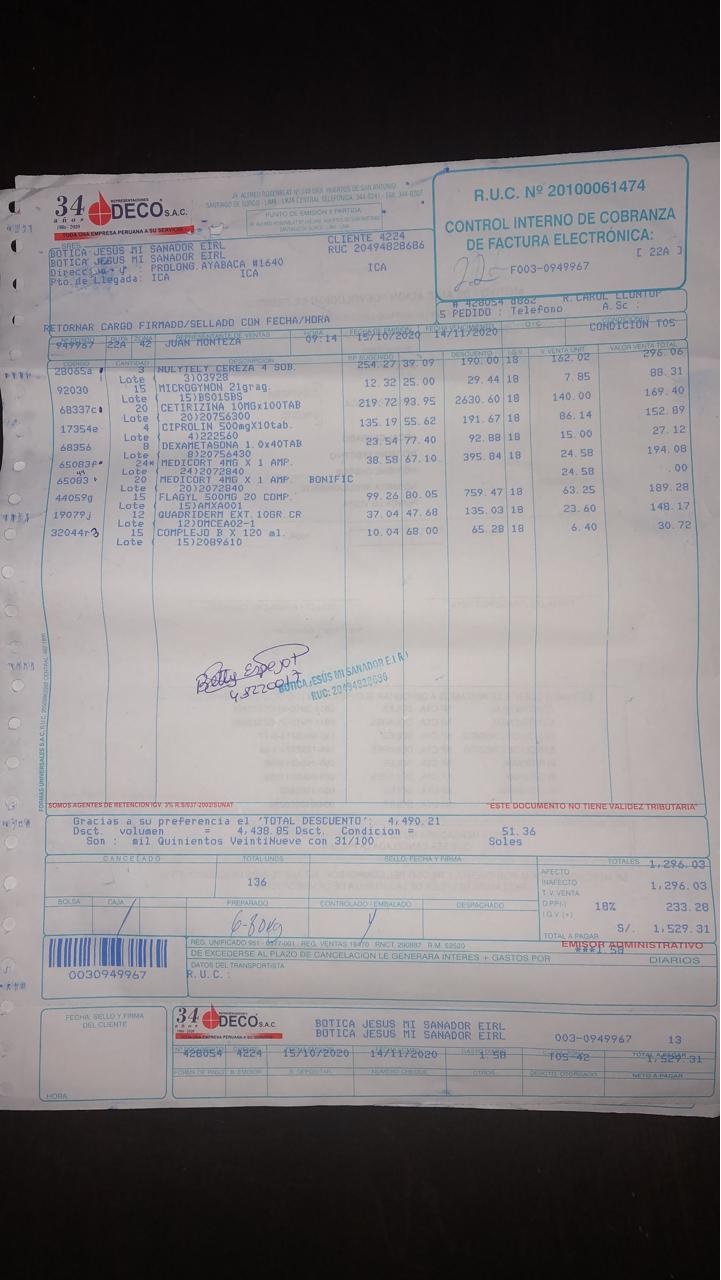 34 años
1986-2020
REPRESENTACIONES
DECO S.A.C.
TODA UNA EMPRESA PERUANA A SU SERVICIO
PUNTO DE EMISIÓN Y PARTIDA
R.U.C. Nº 20100061474
CONTROL INTERNO DE COBRANZA
DE FACTURA ELECTRÓNICA:
[ 22A ]
F003-0949967
SRES.
BOTICA JESUS MI SANADOR EIRL
CLIENTE 4224
BOTICA JESUS MI SANADOR EIRL
RUC 20494828686
: PROLONG. AYABACA #1640
Pto. de Llegada: ICA ICA ICA
# 428054 d862 R. CAROL LLONTOP
5 PEDIDO : Telefono A. Sc :
RETORNAR CARGO FIRMADO/SELLADO CON FECHA/HORA
CONDICION T05
949967 22A 42 JUAN MONTEZA 09:14 15/10/2020 14/11/2020
CODIGO CANTIDAD DESCRIPCION P.P. SUGERIDO % DESCUENTO I.G.V. V. VENTA UNIT. VALOR VENTA TOTAL
28065a 3 NULYTELY CEREZA 4 SOB. 254.27 39.09 190.00 18 162.02 296.06
Lote ( 3)03928
92030 15 MICROGYNON 21grag. 12.32 25.00 29.44 18 7.85 88.31
Lote ( 15)BS01SBS
68337c 20 CETIRIZINA 10MGx100TAB 219.72 93.95 2630.60 18 140.00 169.40
Lote ( 20)20756300
17354e 4 CIPROLIN 500mgX10tab. 135.19 55.62 191.67 18 86.14 152.89
Lote ( 4)222560
68356 8 DEXAMETASONA 1.0x40TAB 23.54 77.40 92.88 18 15.00 27.12
Lote ( 8)20756430
65083f 24* MEDICORT 4MG X 1 AMP. 38.58 67.10 395.84 18 24.58 194.08
Lote ( 24)2072840
65083 20 MEDICORT 4MG X 1 AMP. BONIFIC 24.58 .00
Lote ( 20)2072840
44059g 15 FLAGYL 500MG 20 COMP. 99.26 80.05 759.47 18 63.25 189.28
Lote ( 15)AMXA001
19079j 12 QUADRIDERM EXT. 10GR. CR 37.04 47.68 135.03 18 23.60 148.17
Lote ( 12)OMCEA02-1
32044r3 15 COMPLEJO B X 120 ml. 10.04 68.00 65.28 18 6.40 30.72
Lote ( 15)2089610
Betty Espejo
BOTICA JESÚS MI SANADOR E.I.R.L
RUC: 20494828686
SOMOS AGENTES DE RETENCION IGV. 3% R.S/037-2002/SUNAT
"ESTE DOCUMENTO NO TIENE VALIDEZ TRIBUTARIA"
Gracias a su preferencia el 'TOTAL DESCUENTO': 4,490.21
Dsct. volumen = 4,438.85 Dsct. Condicion = 51.36
Son : mil Quinientos VeintiNueve con 31/100 Soles
CANCELADO TOTAL UNDS SELLO, FECHA Y FIRMA TOTALES 1,296.03
136
AFECTO
INAFECTO
T. V. VENTA 1,296.03
D.P.P.(-)
I.G.V. (+) 18% 233.28
TOTAL A PAGAR S/. 1,529.31
BOLSA CAJA PREPARADO CONTROLADO / EMBALADO DESPACHADO
0030949967
EMISOR ADMINISTRATIVO
DE EXCEDERSE AL PLAZO DE CANCELACIÓN LE GENERARA INTERES + GASTOS POR ***1.58 DIARIOS
DATOS DEL TRANSPORTISTA
R.U.C.:
FECHA, SELLO Y FIRMA
DEL CLIENTE
HORA
34 años
1986-2020
REPRESENTACIONES
DECO S.A.C.
TODA UNA EMPRESA PERUANA A SU SERVICIO
BOTICA JESUS MI SANADOR EIRL
BOTICA JESUS MI SANADOR EIRL
003-0949967 13
428054 4224 15/10/2020 14/11/2020 1.58 T05-42 1,529.31
FORMA DE PAGO B. EMISOR B. DEPOSITAR NUMERO CHEQUE OTROS DSCTO. OTORGADO NETO A PAGAR